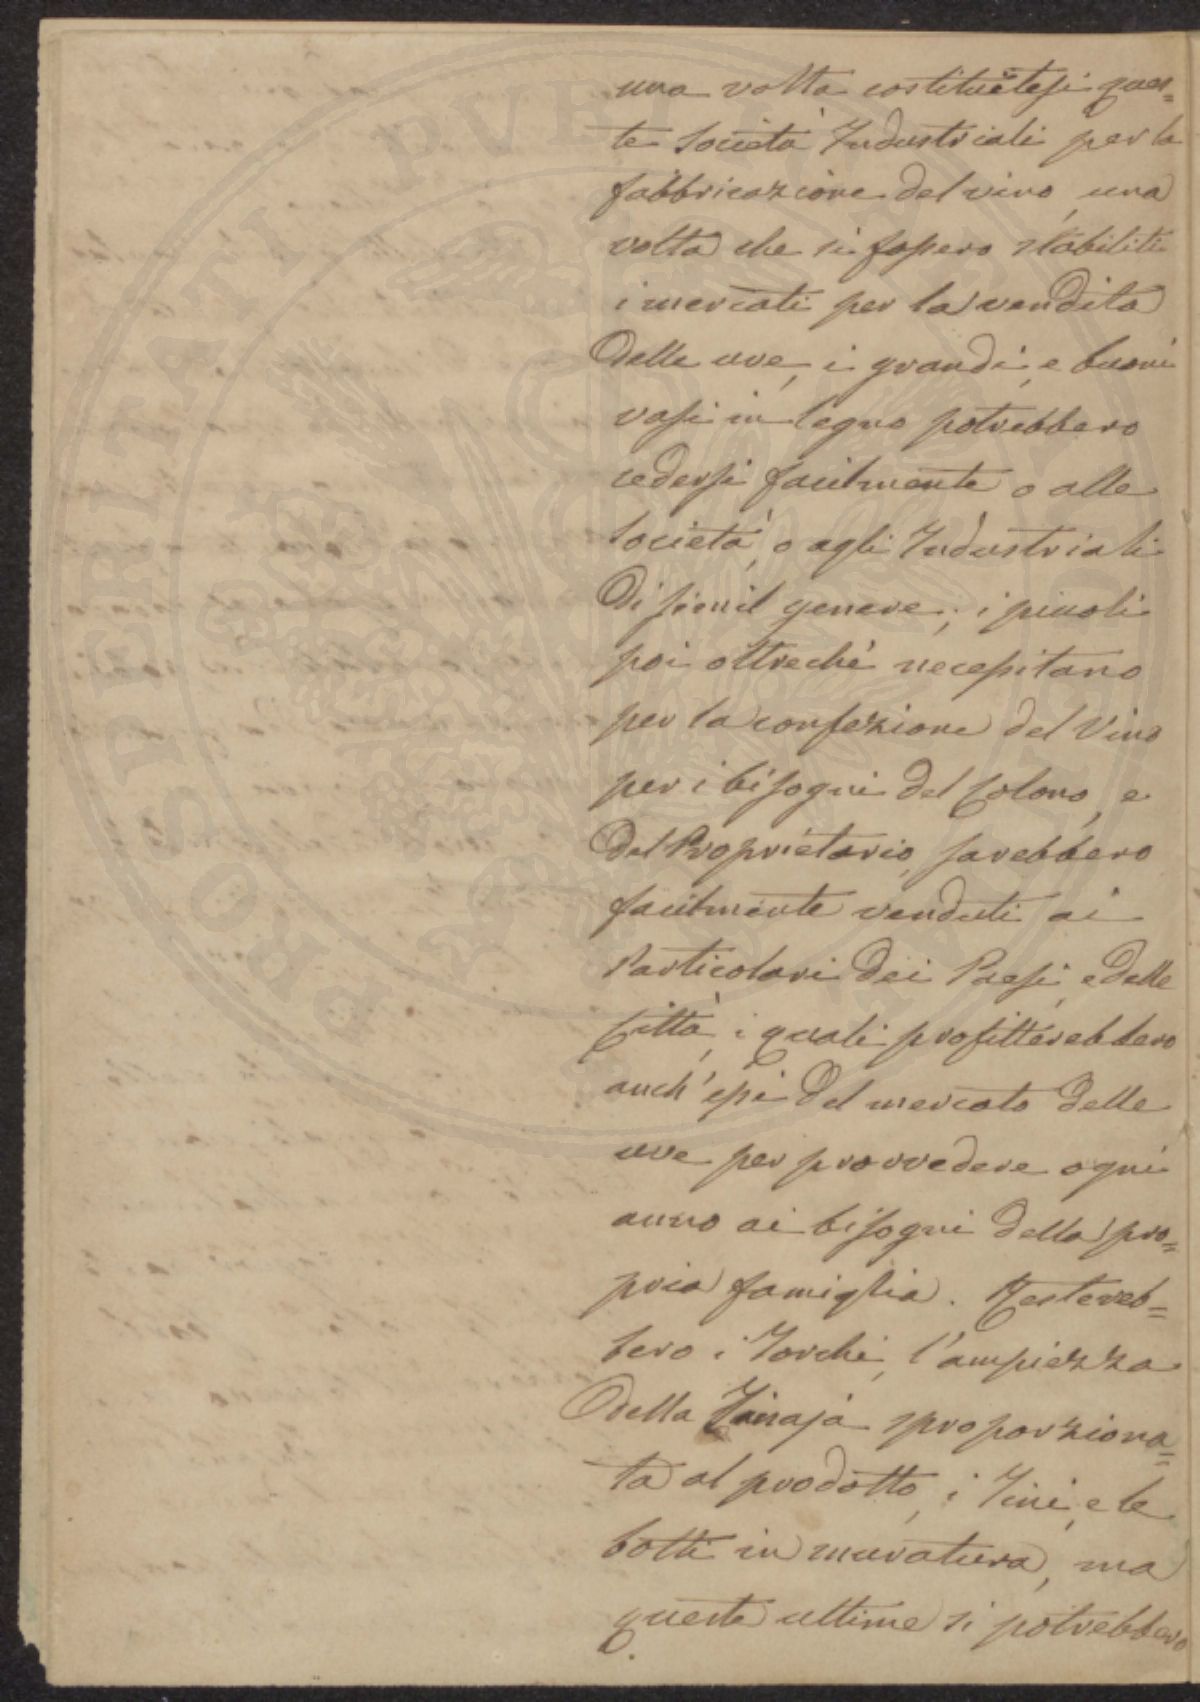 una volta costituitesi ques=
te Società Industriali per la
fabbricazione del vino, una
volta che si fossero stabiliti
i mercati per la vendita
delle uve, i grandi, e buoni
vasi in legno potrebbero
cedersi facilmente o alle
Società, o agli Industriali
di simil genere; i piccoli
poi oltreché necessitano
per la confezione del Vino
per i bisogni del Colono, e
del Proprietario, sarebbero
facilmente venduti ai
Particolari dei Paesi, e delle
Città, i quali profitterebbero
anch'essi del mercato delle
uve per provvedere ogni
anno ai bisogni della pro=
pria famiglia. Restereb=
bero i Torchi, l'ampiezza
della Tinaja sproporziona=
ta al prodotto, i Tini, e le
botti in muratura, ma
queste ultime si potrebbero
PROSPERITATI PVBLICAE